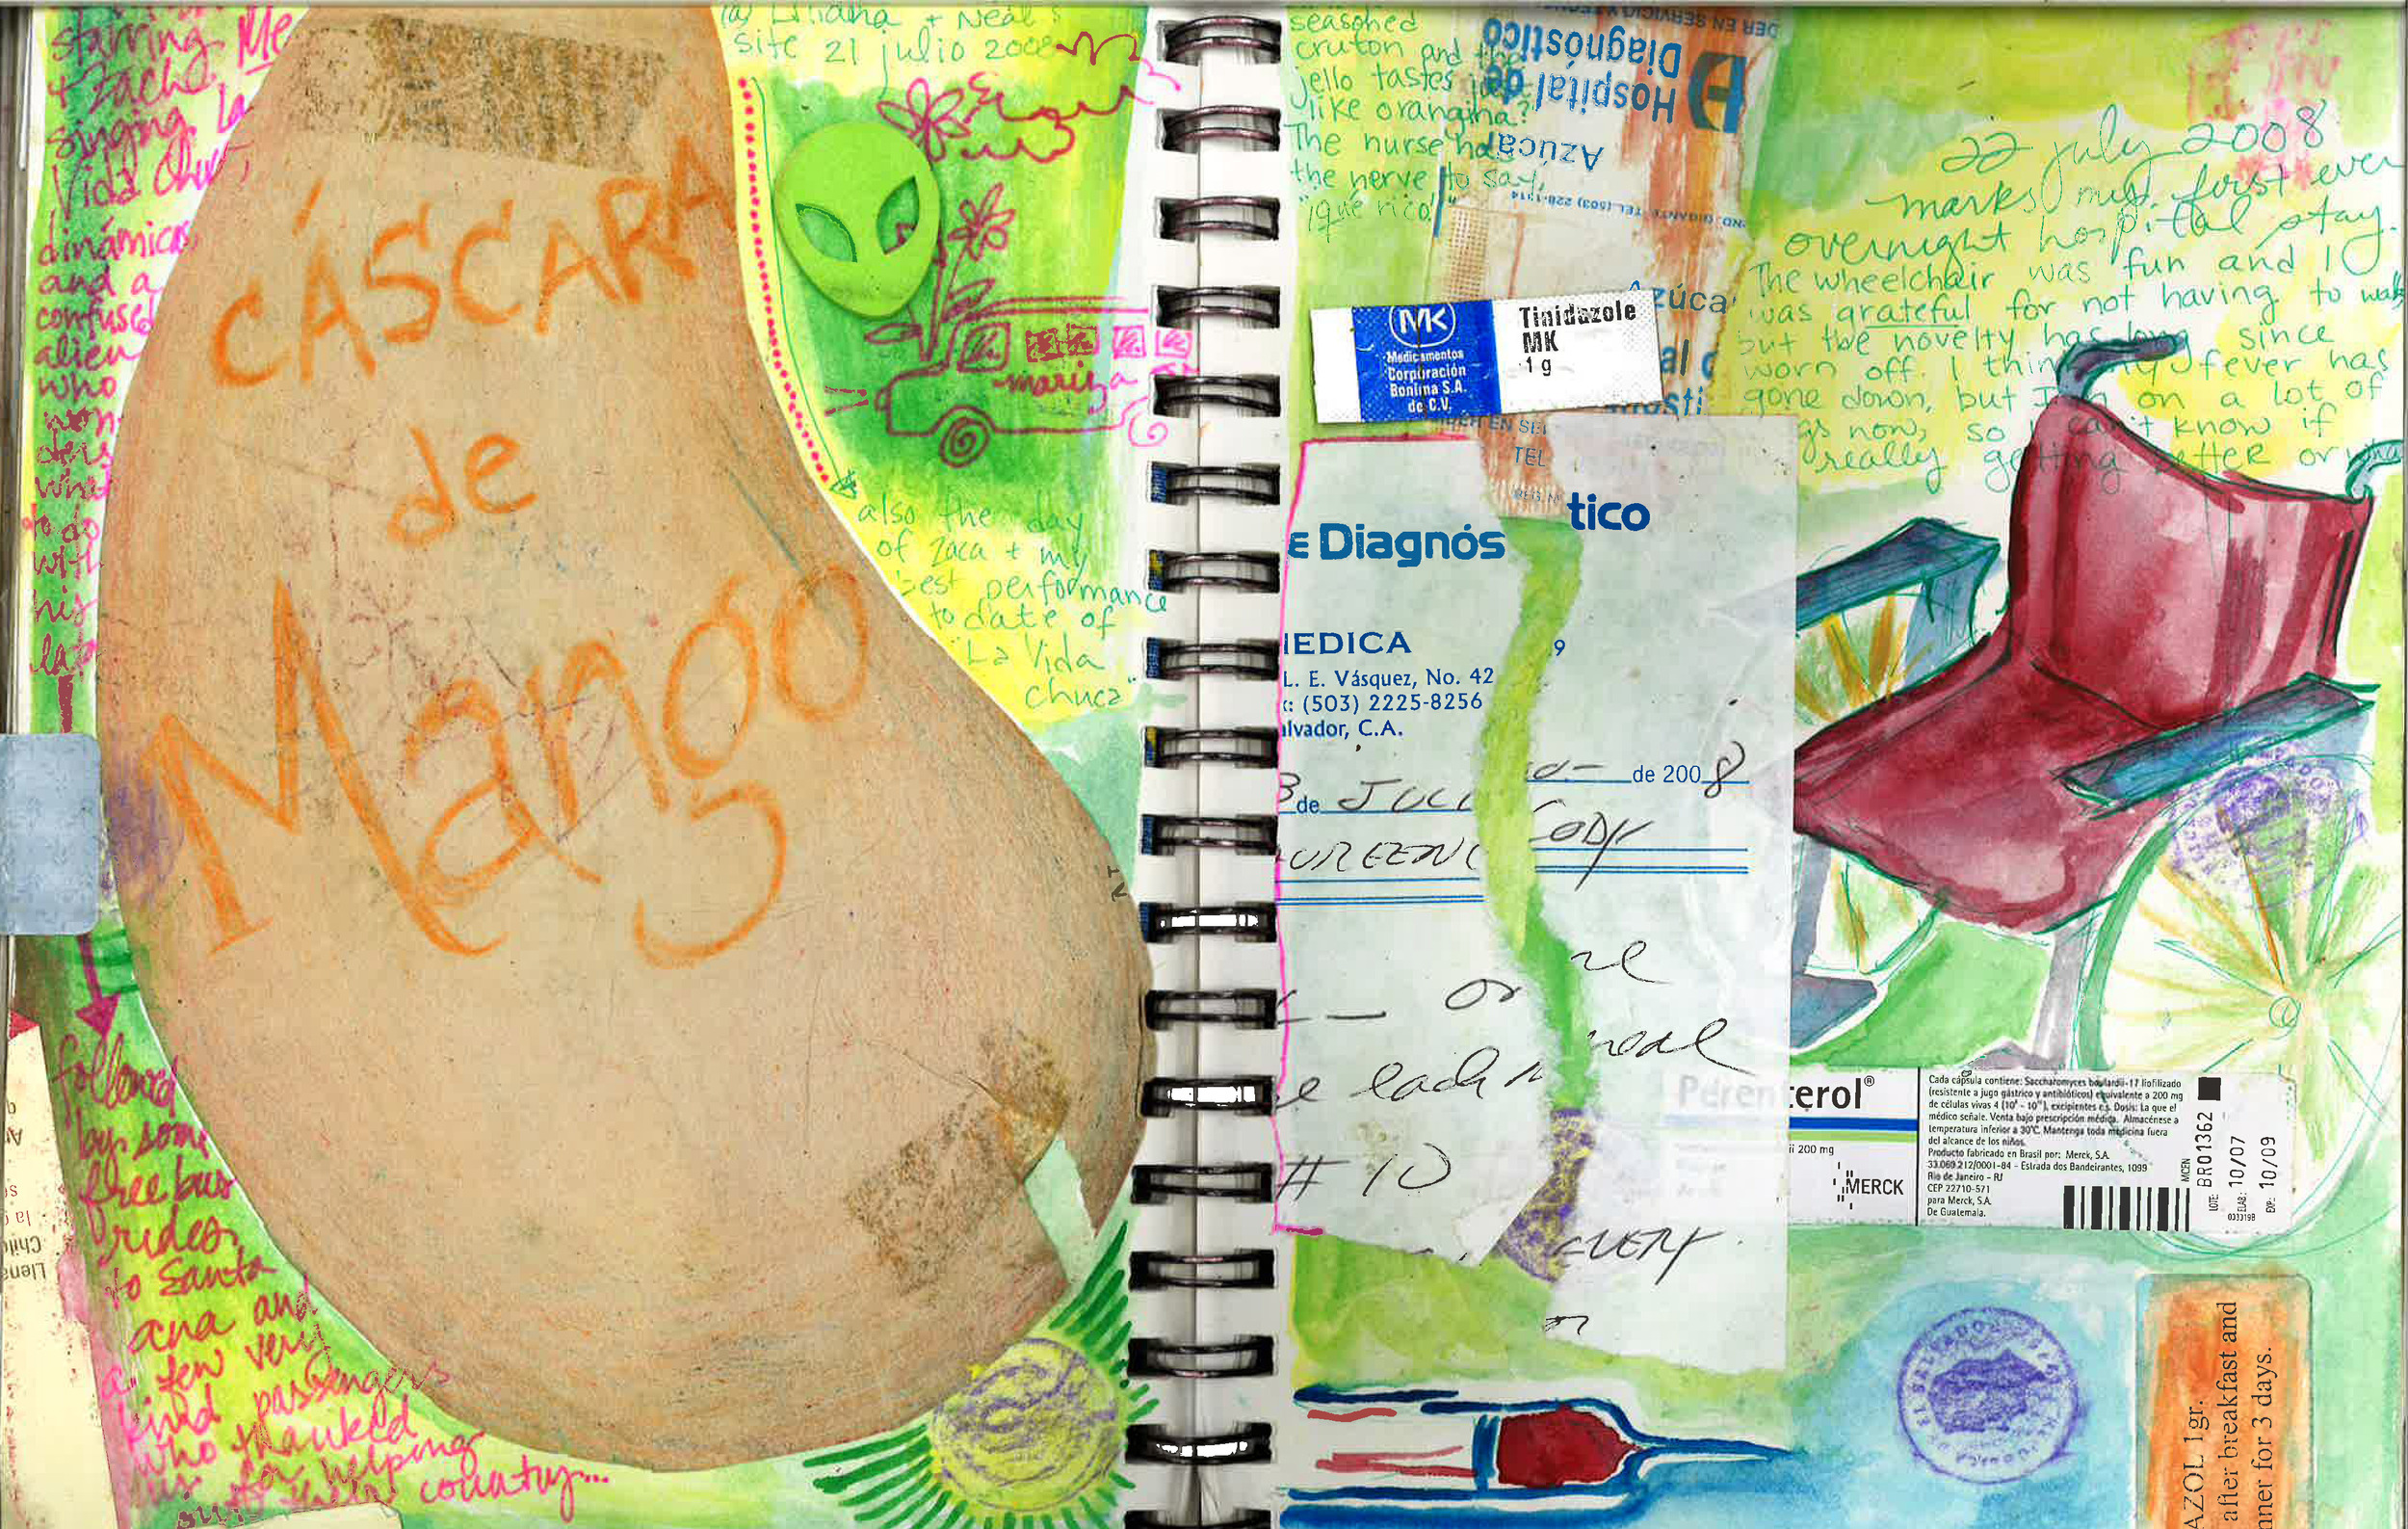 starring Me
+ Zache
singing La
Vida Chuca,
dinámicas
and a
confused
alien
who
won-
ders
what
to do
with
his
followed
by some
free bus
rides
to Santa
ana and
a few very
kind passengers
who thanked
us for helping
their country...
CÁSCARA
de
Mango
@ Liliana + Neal's
site 21 julio 2008
mariza
also the day
of Zaca + my
best performance
to date of
"La Vida
chuca"
seasoned
cruton and the
jello tastes
like orangina?
The nurse has
the nerve to say,
"¡Qué rico!"
DER EN SERVICIO Y
Hospital de
Diagnóstico
Azúcar
TEL. (503) 228-1314
MK
Medicamentos
Corporación
Bonima S.A.
de C.V.
Tinidazole
MK
1 g
22 july 2008
marks my first ever
overnight hospital stay.
The wheelchair was fun and I
was grateful for not having to walk
but the novelty has long since
worn off. I think my fever has
gone down, but I'm on a lot of
now, so I can't know if
really getting better or
EN SE
TEL
e Diagnós tico
MEDICA
L. E. Vásquez, No. 42 9
x: (503) 2225-8256
alvador, C.A.
3 de JULIO de 2008
UREEN CODY
one
e each meal
# 10
EVERY
Perenterol®
ii 200 mg
MERCK
Cada cápsula contiene: Saccharomyces boulardii-17 liofilizado
(resistente a jugo gástrico y antibióticos) equivalente a 200 mg
de células vivas 4 (10⁹ - 10¹⁰), excipientes c.s. Dosis: La que el
médico señale. Venta bajo prescripción médica. Almacénese a
temperatura inferior a 30°C. Mantenga toda medicina fuera
del alcance de los niños.
Producto fabricado en Brasil por: Merck, S.A.
33.069.212/0001-84 - Estrada dos Bandeirantes, 1099
Rio de Janeiro - RJ
CEP 22710-571
para Merck, S.A.
De Guatemala.
MCEN
LOTE: BR01362
ELAB: 10/07
EXP: 10/09
033319B
EL SALVADOR
AZOL 1gr.
after breakfast and
nner for 3 days.